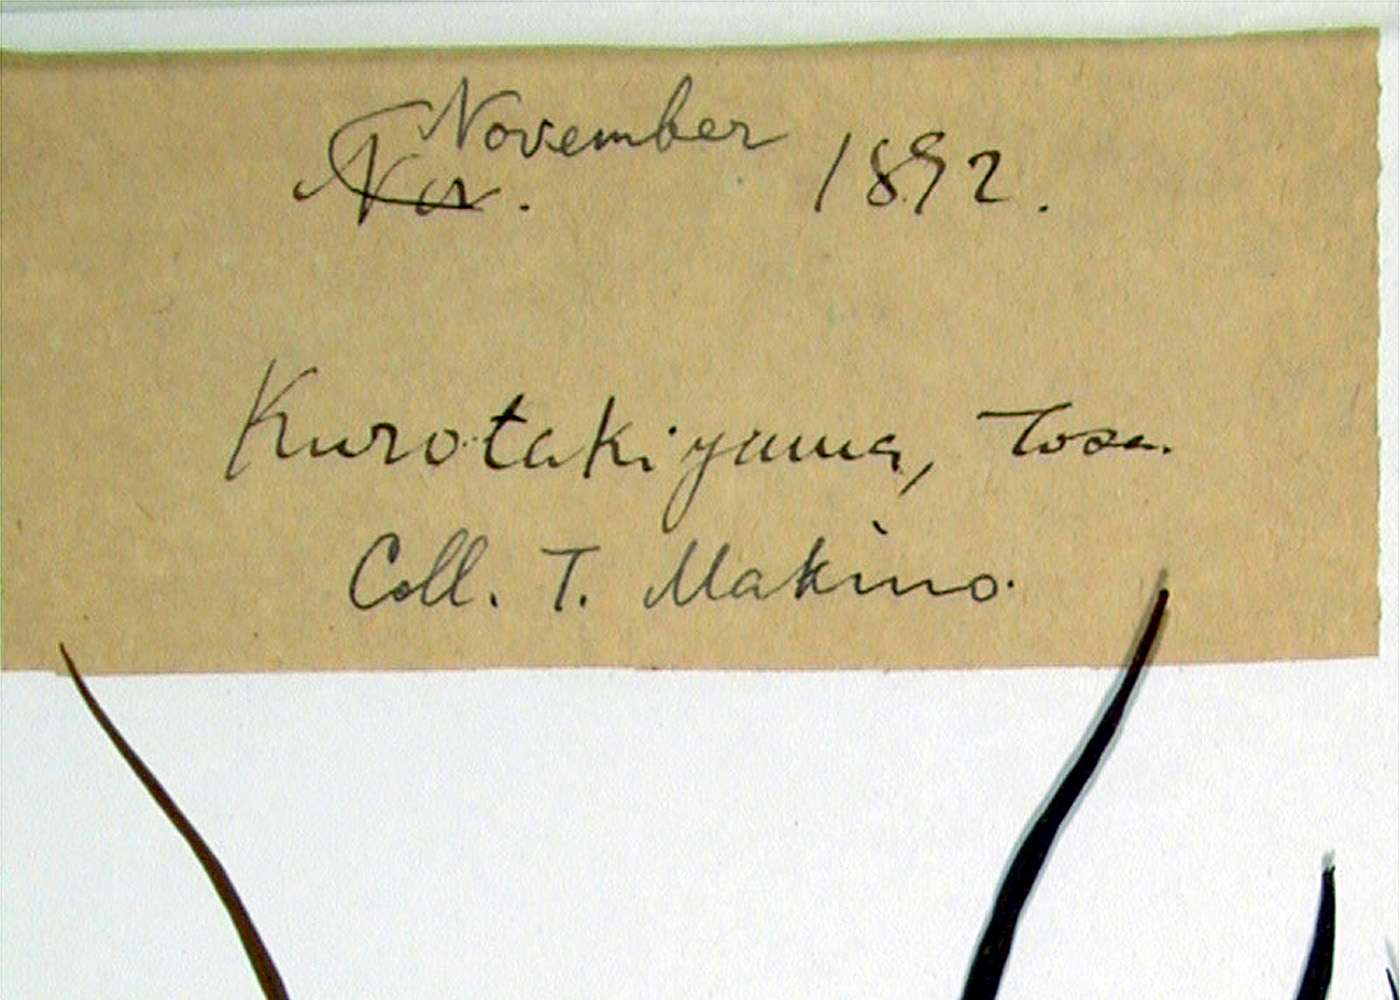 November
Nov. 1892.
Kurotakiyama, Tosa.
Coll. T. Makino.